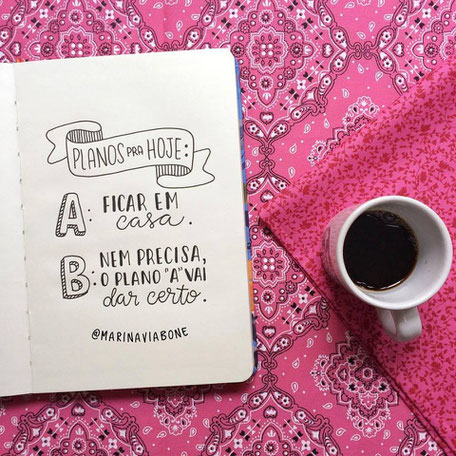 PLANOS PRA HOJE:
A: FICAR EM
casa.
B: NEM PRECISA,
O PLANO "A" VAI
dar certo.
@MARINAVIABONE